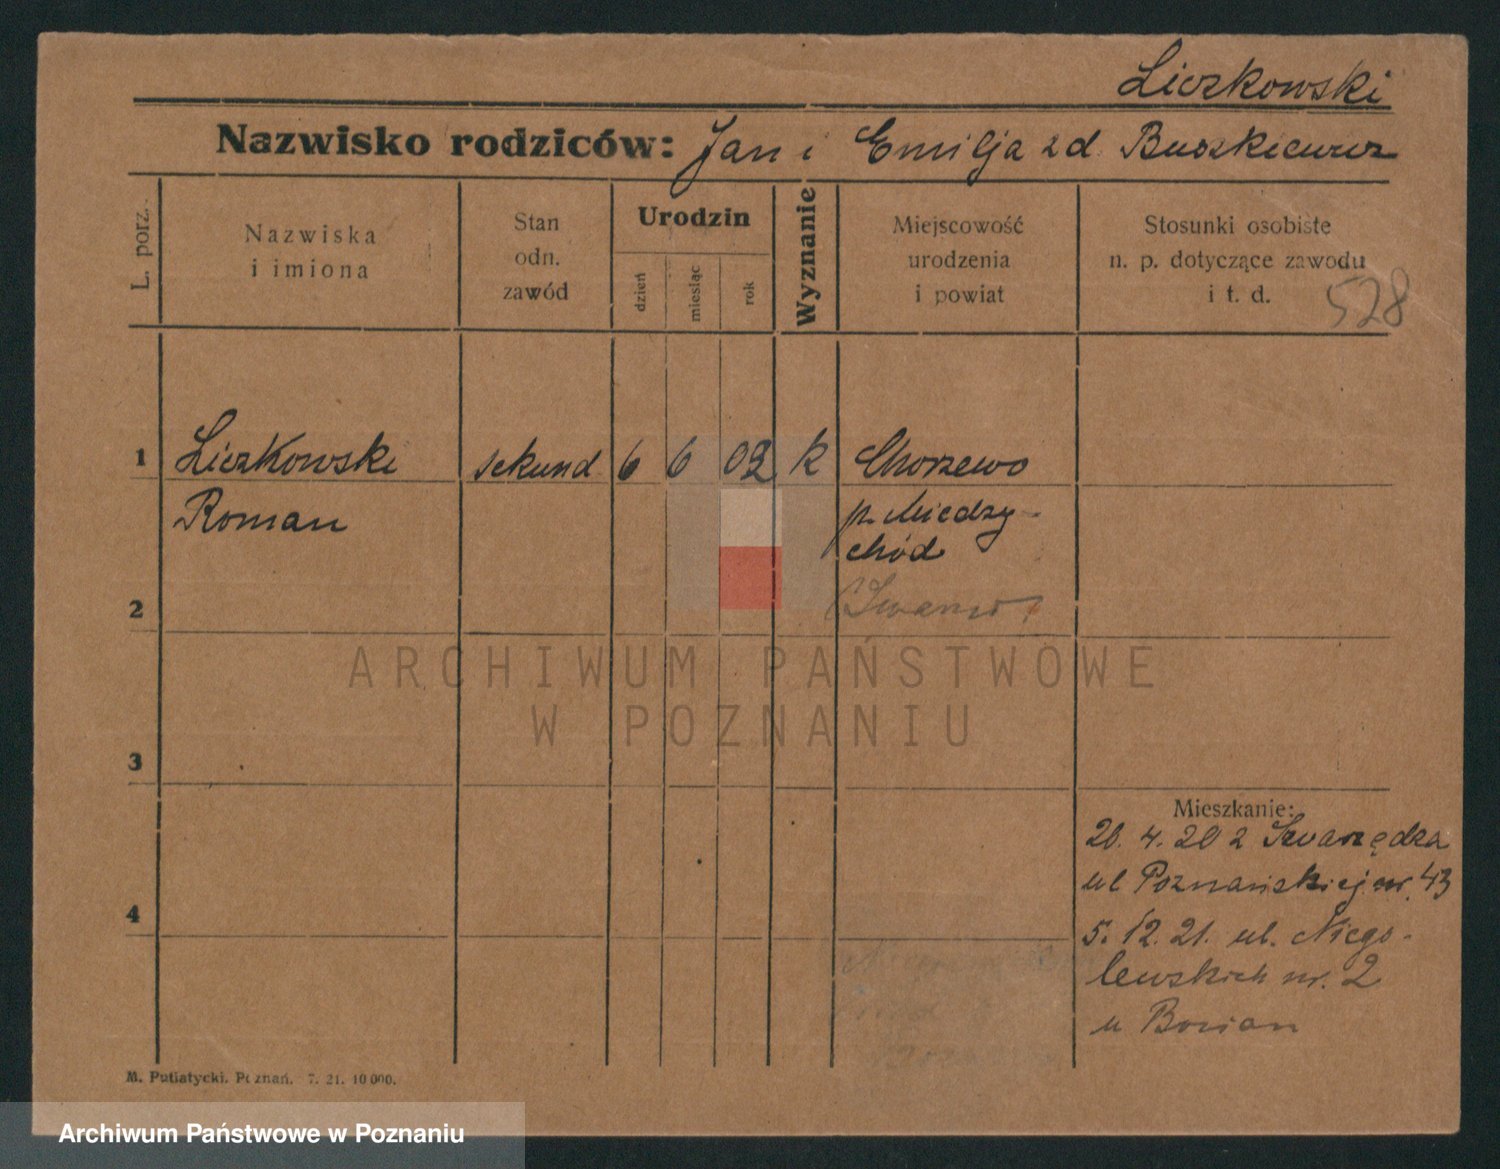 Liczkowski
Nazwisko rodziców: Jan i Emilja zd. Buszkiewicz
L. porz.
Nazwiska
i imiona
Stan
odn.
zawód
Urodzin
dzień
miesiąc
rok
Wyznanie
Miejscowość
urodzenia
i powiat
Stosunki osobiste
n. p. dotyczące zawodu
i t. d.
528
1 Liczkowski sekund 6 6 02 k Chorzewo
Roman p. Miedzy-
chód
2
ARCHIWUM PAŃSTWOWE
W POZNANIU
3
Mieszkanie:
20. 4. 20 z Swarzędza
ul Poznańskiej nr. 43
4
5. 12. 21. ul. Niego-
lewskich nr. 2
u
M. Putiatycki. Poznań. 7. 21. 10 000.
Archiwum Państwowe w Poznaniu